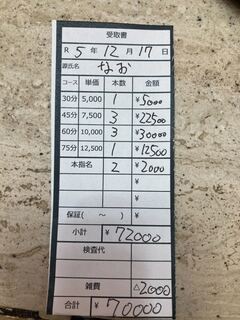 受取書
R 5 年 12 月 17 日
源氏名 なお
コース 単価 本数 金額
30分 5,000 1 ¥5000
45分 7,500 3 ¥22500
60分 10,000 3 ¥30000
75分 12,500 1 ¥12500
本指名 2 ¥2000
¥
¥
保証( ～ ) ¥
小計 ¥72000
検査代
雑費 △2000
合計 ¥70000